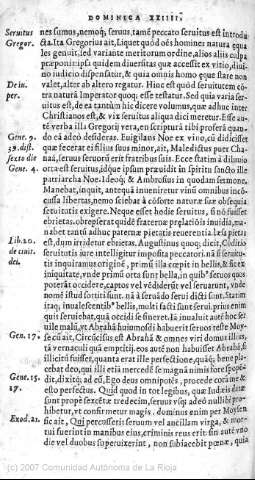 DOMINICA XXIIII.
Seruitus
Gregor.
nes sumus, nemoq́; seruus, tamẽ peccato seruitus est introdu
cta. Ita Gregorius ait, Liquet quòd oẽs homines natura equa
les genuit, sed variante meritorum ordine, alios alijs culpa
ipsa quidem diuersitas quæ accessit ex vitio, diui
no iudicio dispensatur, & quia omnis homo eque stare non
valet, alter ab altero regatur. Hinc est quòd seruitutem cõ
De im
per.
tra natura Imperator quoq; esse fatetur. Sed quia varia ser
uitus est, de ea tantùm hîc dicere volumus, quæ adhuc inter
Christianos est, & vix seruitus aliqua dici meretur. Esse au
tẽ verba illa Gregorij vera, ex scriptura tibi proferã quan
Gene. 9.
do eã adeò desideras. Euigilans Noe ex vino, cũ didicisset
39. dist.
sexto die
quæ fecerat ei filius suus minor, ait, Maledictus puer Cha
naã, seruus seruorũ erit fratribus suis. Ecce statim à diluuio
Gene. 4.
orta est seruitus, idq́ue ipsum præuidit in spiritu sancto ille
patriarcha Noe. Ideoq́; & Ambrosius in quodam sermone,
Manebat, inquit, antequã inueniretur vinũ omnibus incõ
cussa libertas, nemo sciebat à cõsorte naturæ suæ obsequia
seruitutis exigere. Noque esset hodie seruitus, si nõ fuisset
ebrietas. obrepserat quidẽ fraternæ prælatiõis inuidia, ma
nebat tantũ adhuc paternæ pietatis reuerentia. læsa pietas
Lib. 20.
de ciuit.
dei.
est, dum irridetur ebrietas. Augustinus quoq; dicit, Cõditio
seruitutis iure intelligitur imposita peccatori. nã si seruitu
tis inquiramus originẽ, primũ illa cœpit in bellis, & licet
iniquitate, vnde primũ orta sunt bella, in quib⁹ seruos quos
poterãt occidere, captos vel vẽdiderũt vel seruarunt, vnde
nomẽ istud sortiti sunt. nã à seruãdo serui dicti sunt. Statim
itaq; inualescentib⁹ bellis, multi facti sunt serui, prius enim
qui seruiebat, quã occidi se sineret. Iã inualuit autẽ hoc ser
uile malũ, vt Abrahã huiuscemodi habuerit seruos teste Moy
Gen. 17.
se cũ ait, Circũcisus est Abrahã & omnes viri domus illius,
tã vernaculi quã emptitij. eos autẽ non habuisset Abrahã, si
illicitũ fuisset, quanto erat ille perfectione, quãq; bene pla
cebat deo, qui illi etiã mercedẽ se magnã nimis fore spopõ
Gene. 15.
17.
dit, dixitq; ad eũ, Ego deus omnipotẽs, procede corã me &
esto perfectus. Quid quòd in tot legibus, quæ Iudæis datæ
sunt propè sexcẽtæ tredecim, seruus vsq; adeò nullibi pro
hibetur, vt confirmetur magis. dominus enim per Moysen
Exod. 21.
sic ait, Qui percusserit seruum vel ancillam virga, & mor
tui fuerint in manibus eius, criminis reus erit. sin autẽ vno
die vel duobus superuixerint, non subiacebit pœnæ, quia
(c) 2007 Comunidad Autónoma de La Rioja